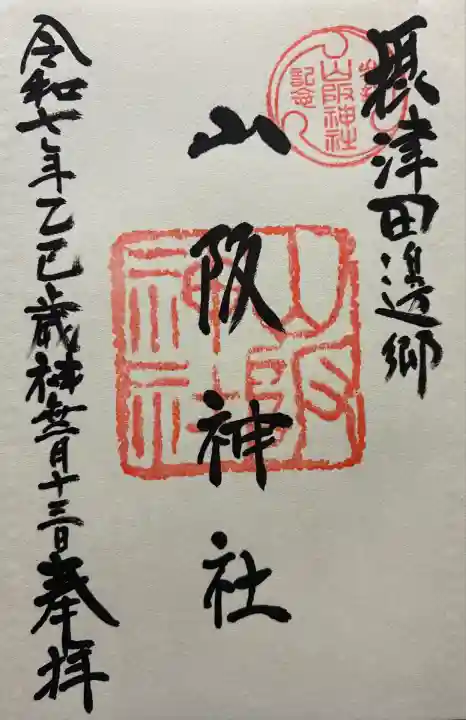 摂津田邊郷
山阪神社
記念
山阪神社
山阪神社
令和七年乙巳歳神無月十三日奉拝